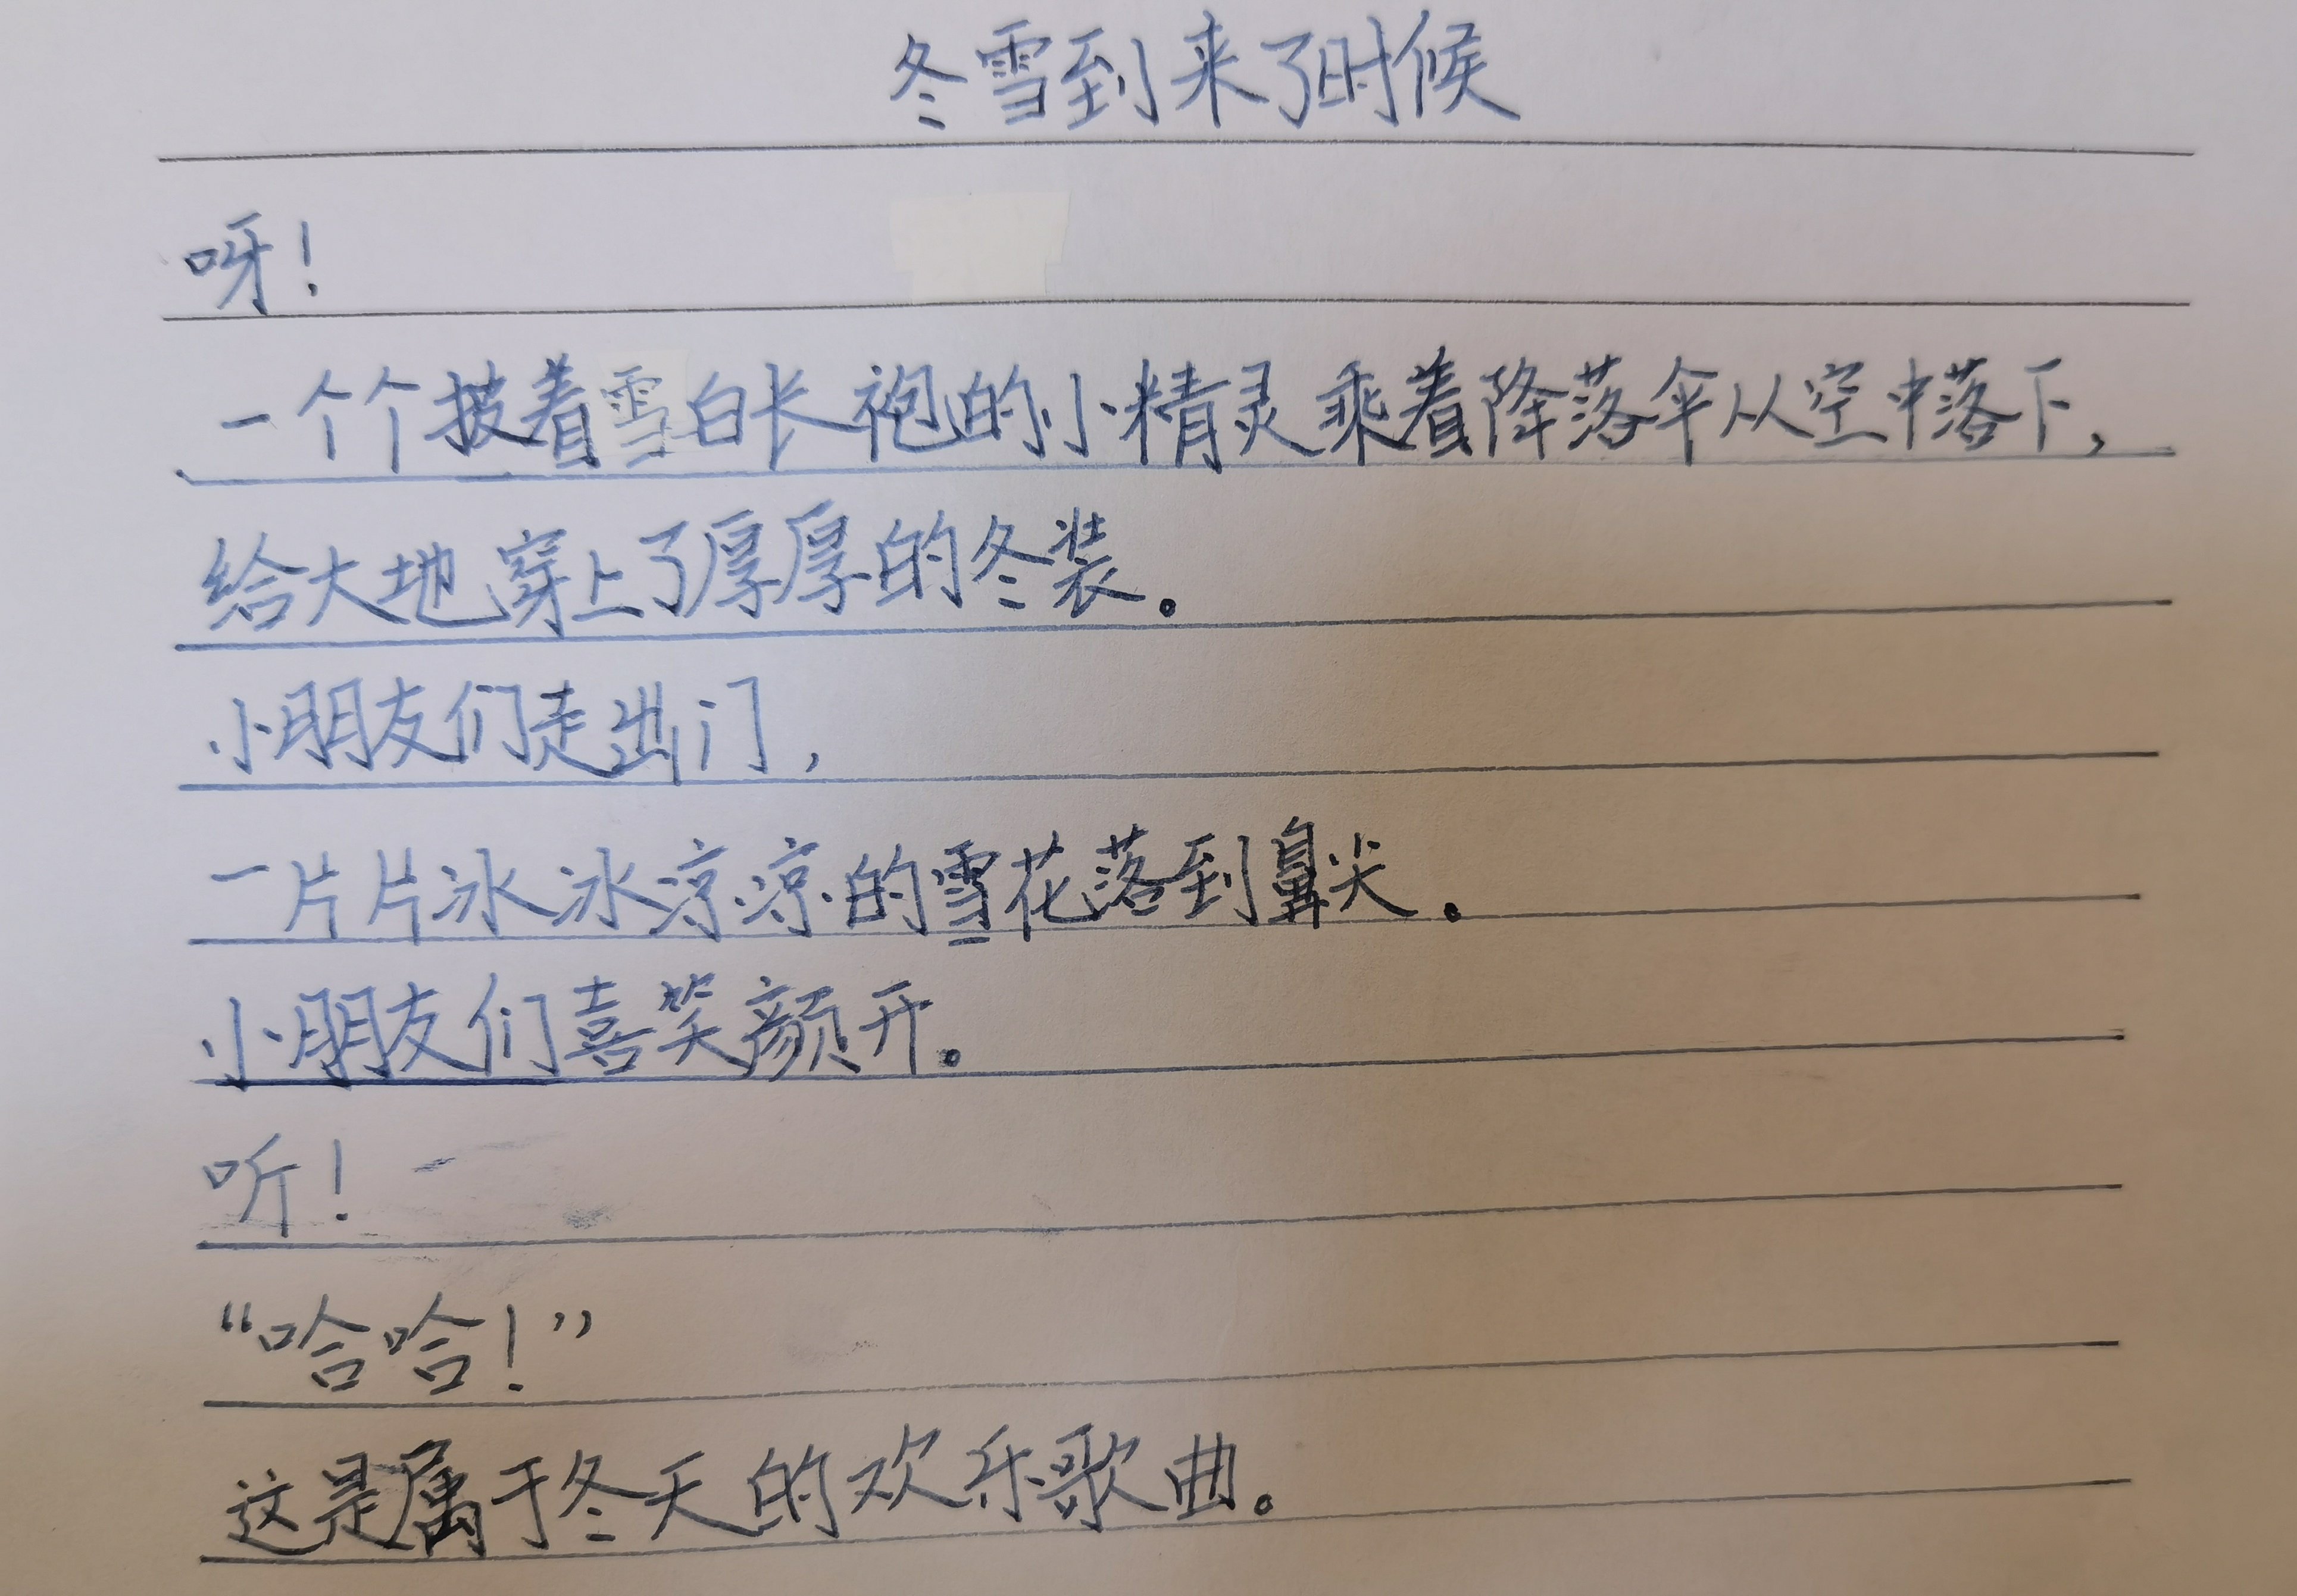 冬雪到来了时候
呀！
一个个披着雪白长袍的小精灵乘着降落伞从空中落下，
给大地穿上了厚厚的冬装。
小朋友们走出门，
一片片冰冰凉凉的雪花落到鼻尖。
小朋友们喜笑颜开。
听！
“哈哈！”
这是属于冬天的欢乐歌曲。